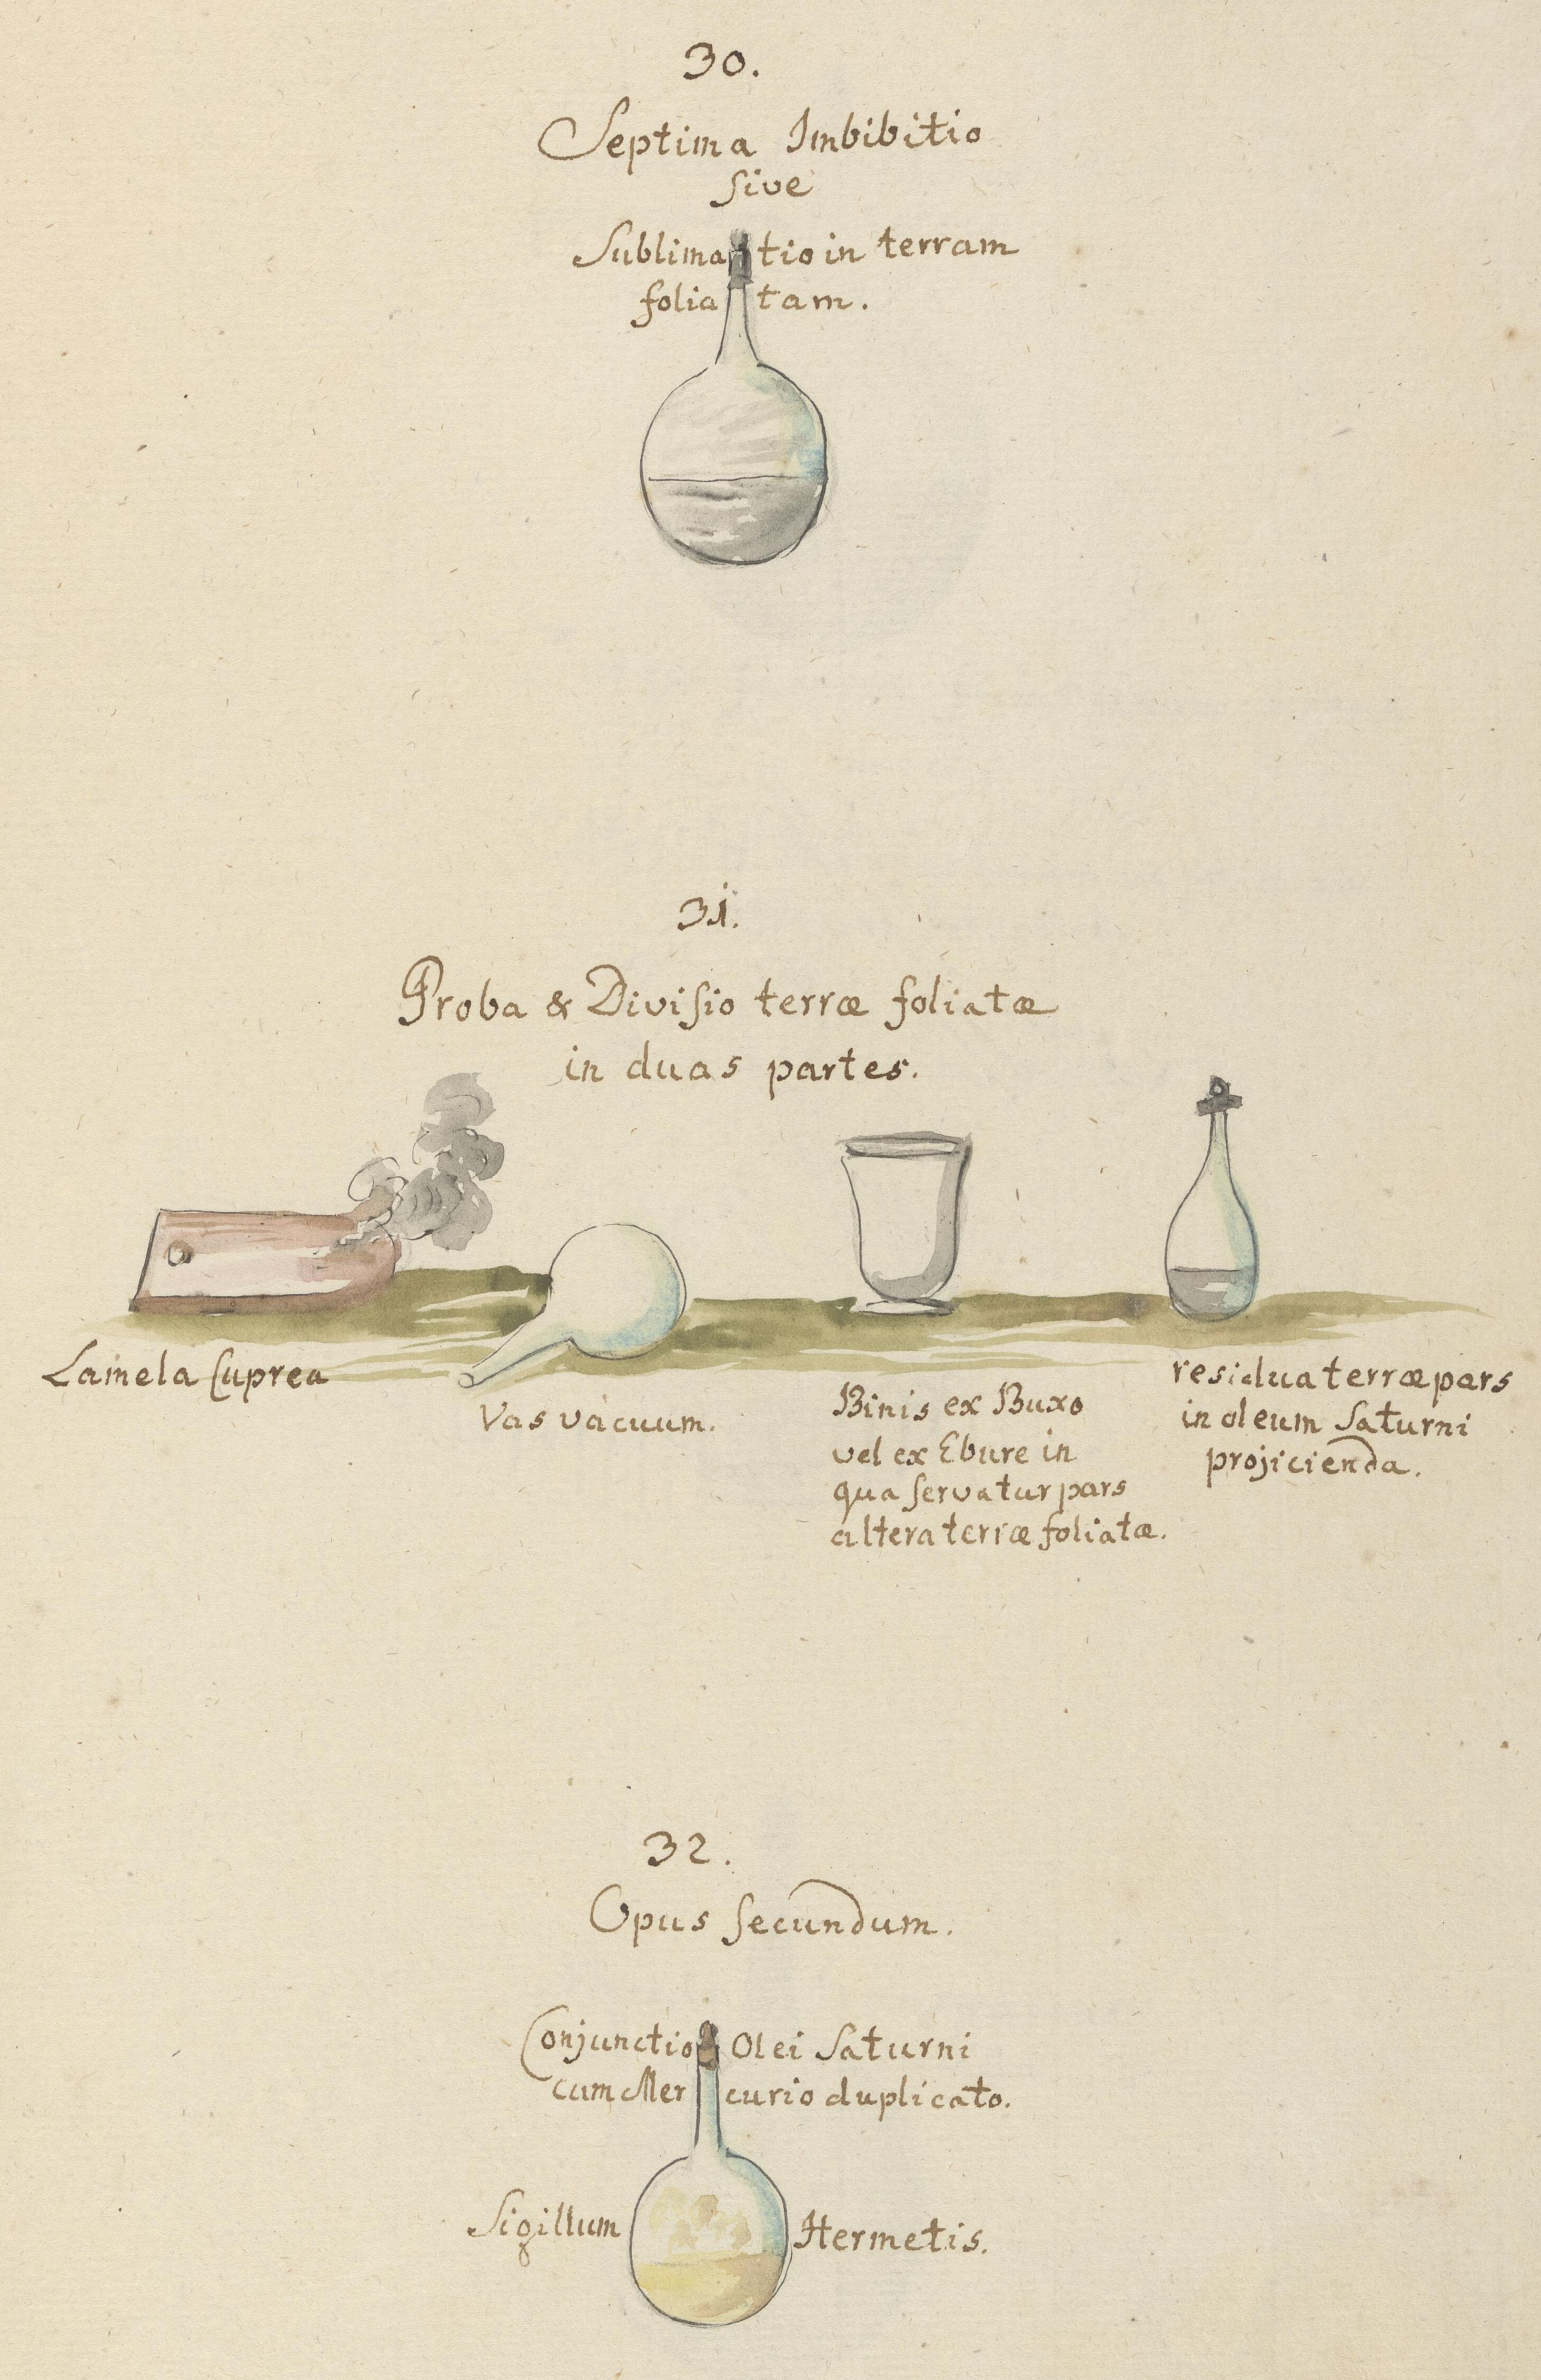 30.
Septima Imbibitio
sive
Sublimatio in terram
foliatam.
31.
Proba & Divisio terræ foliatæ
in duas partes.
Lamela Cuprea
Vas vacuum.
Binis ex Buxo
vel ex Ebure in
qua servatur pars
altera terræ foliatæ.
residua terræ pars
in oleum Saturni
projicienda.
32.
Opus Secundum.
Conjunctio Olei Saturni
cum Mercurio duplicato.
Sigillum Hermetis.